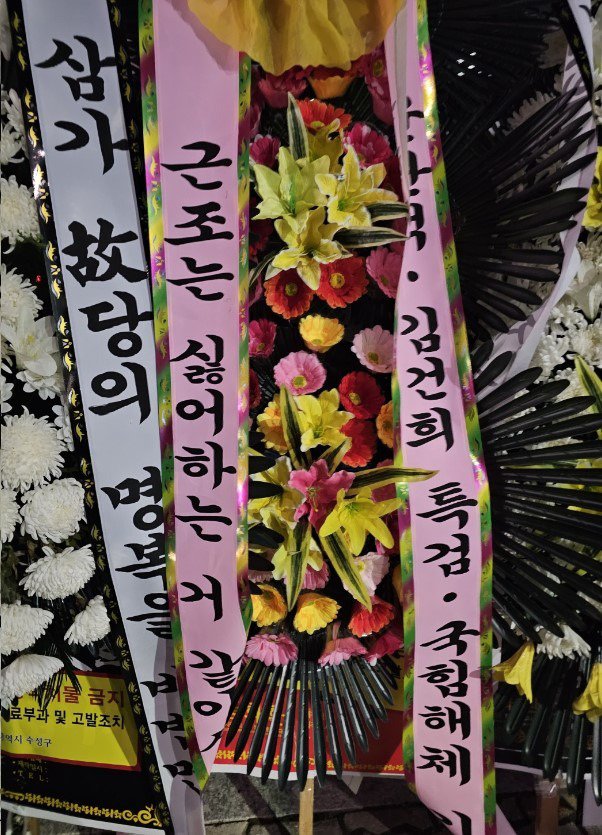 삼가 故당의 명복을
근조는 싫어하는 거 같아
김건희 특검 · 국힘해체
물 금지
료부과 및 고발조치
수성구